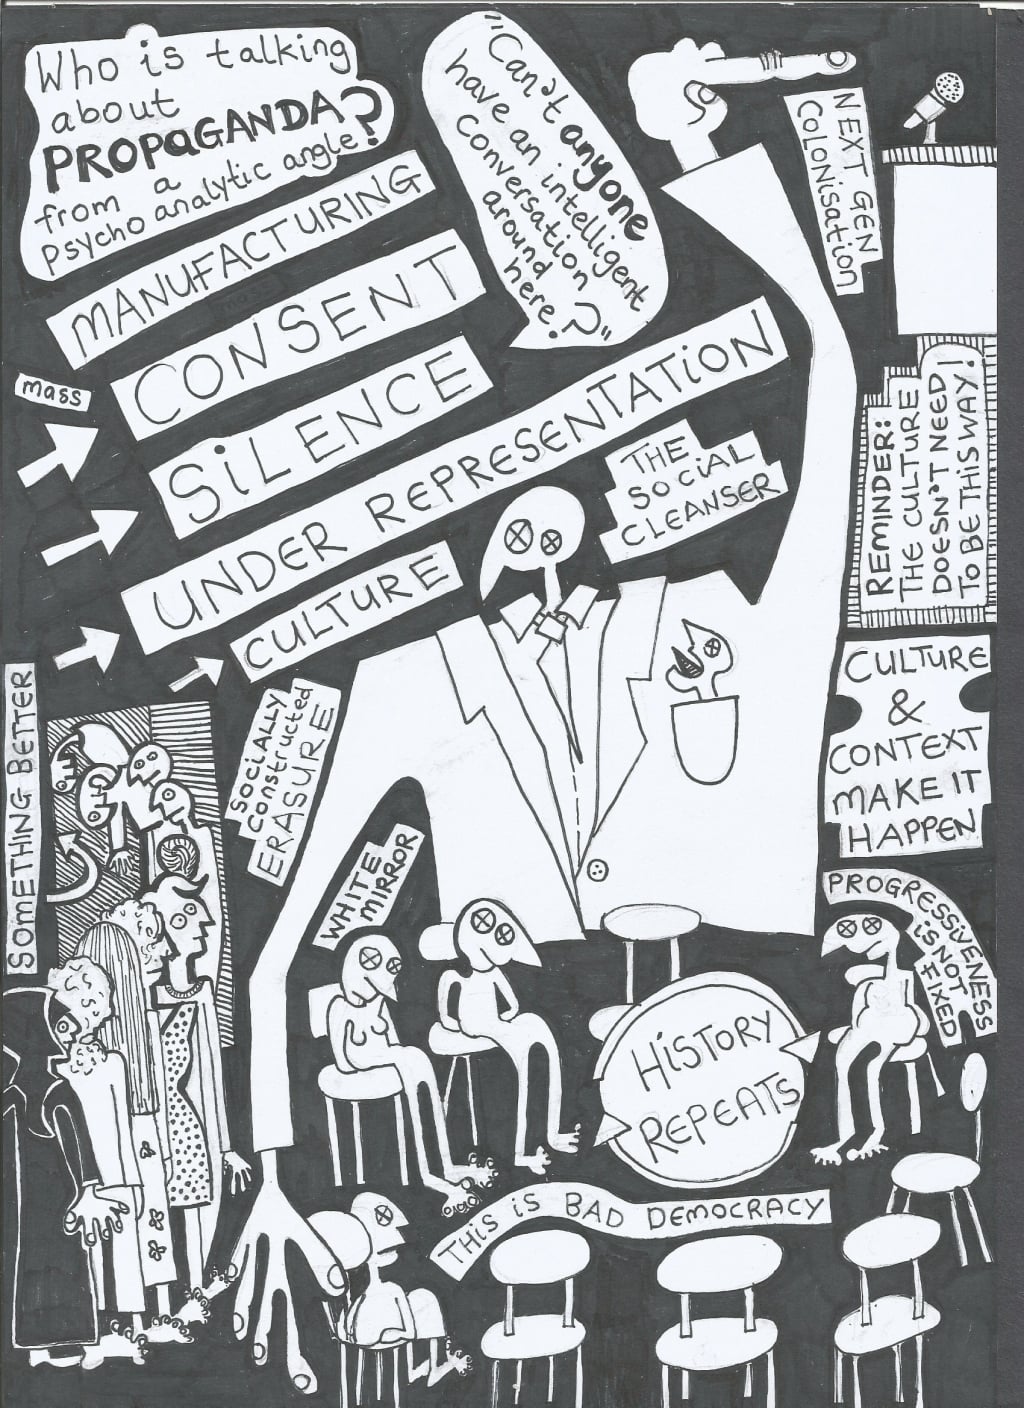 Who is talking
about
PROPAGANDA?
from a
psychoanalytic angle?
"Can't anyone
have an intelligent
conversation
around
here?"
NEXT GEN
COLONISATION
MANUFACTURING
mass
CONSENT
SILENCE
UNDER REPRESENTATION
CULTURE
THE
SOCIAL
CLEANSER
REMINDER:
THE CULTURE
DOESN'T NEED
TO BE THIS WAY!
CULTURE
&
CONTEXT
MAKE IT
HAPPEN
SOMETHING BETTER
SOCIALLY
Constructed
ERASURE
WHITE
MIRROR
PROGRESSIVENESS
iS NOT
FIXED
HiSTORY
REPEATS
THIS iS BAD DEMOCRACY